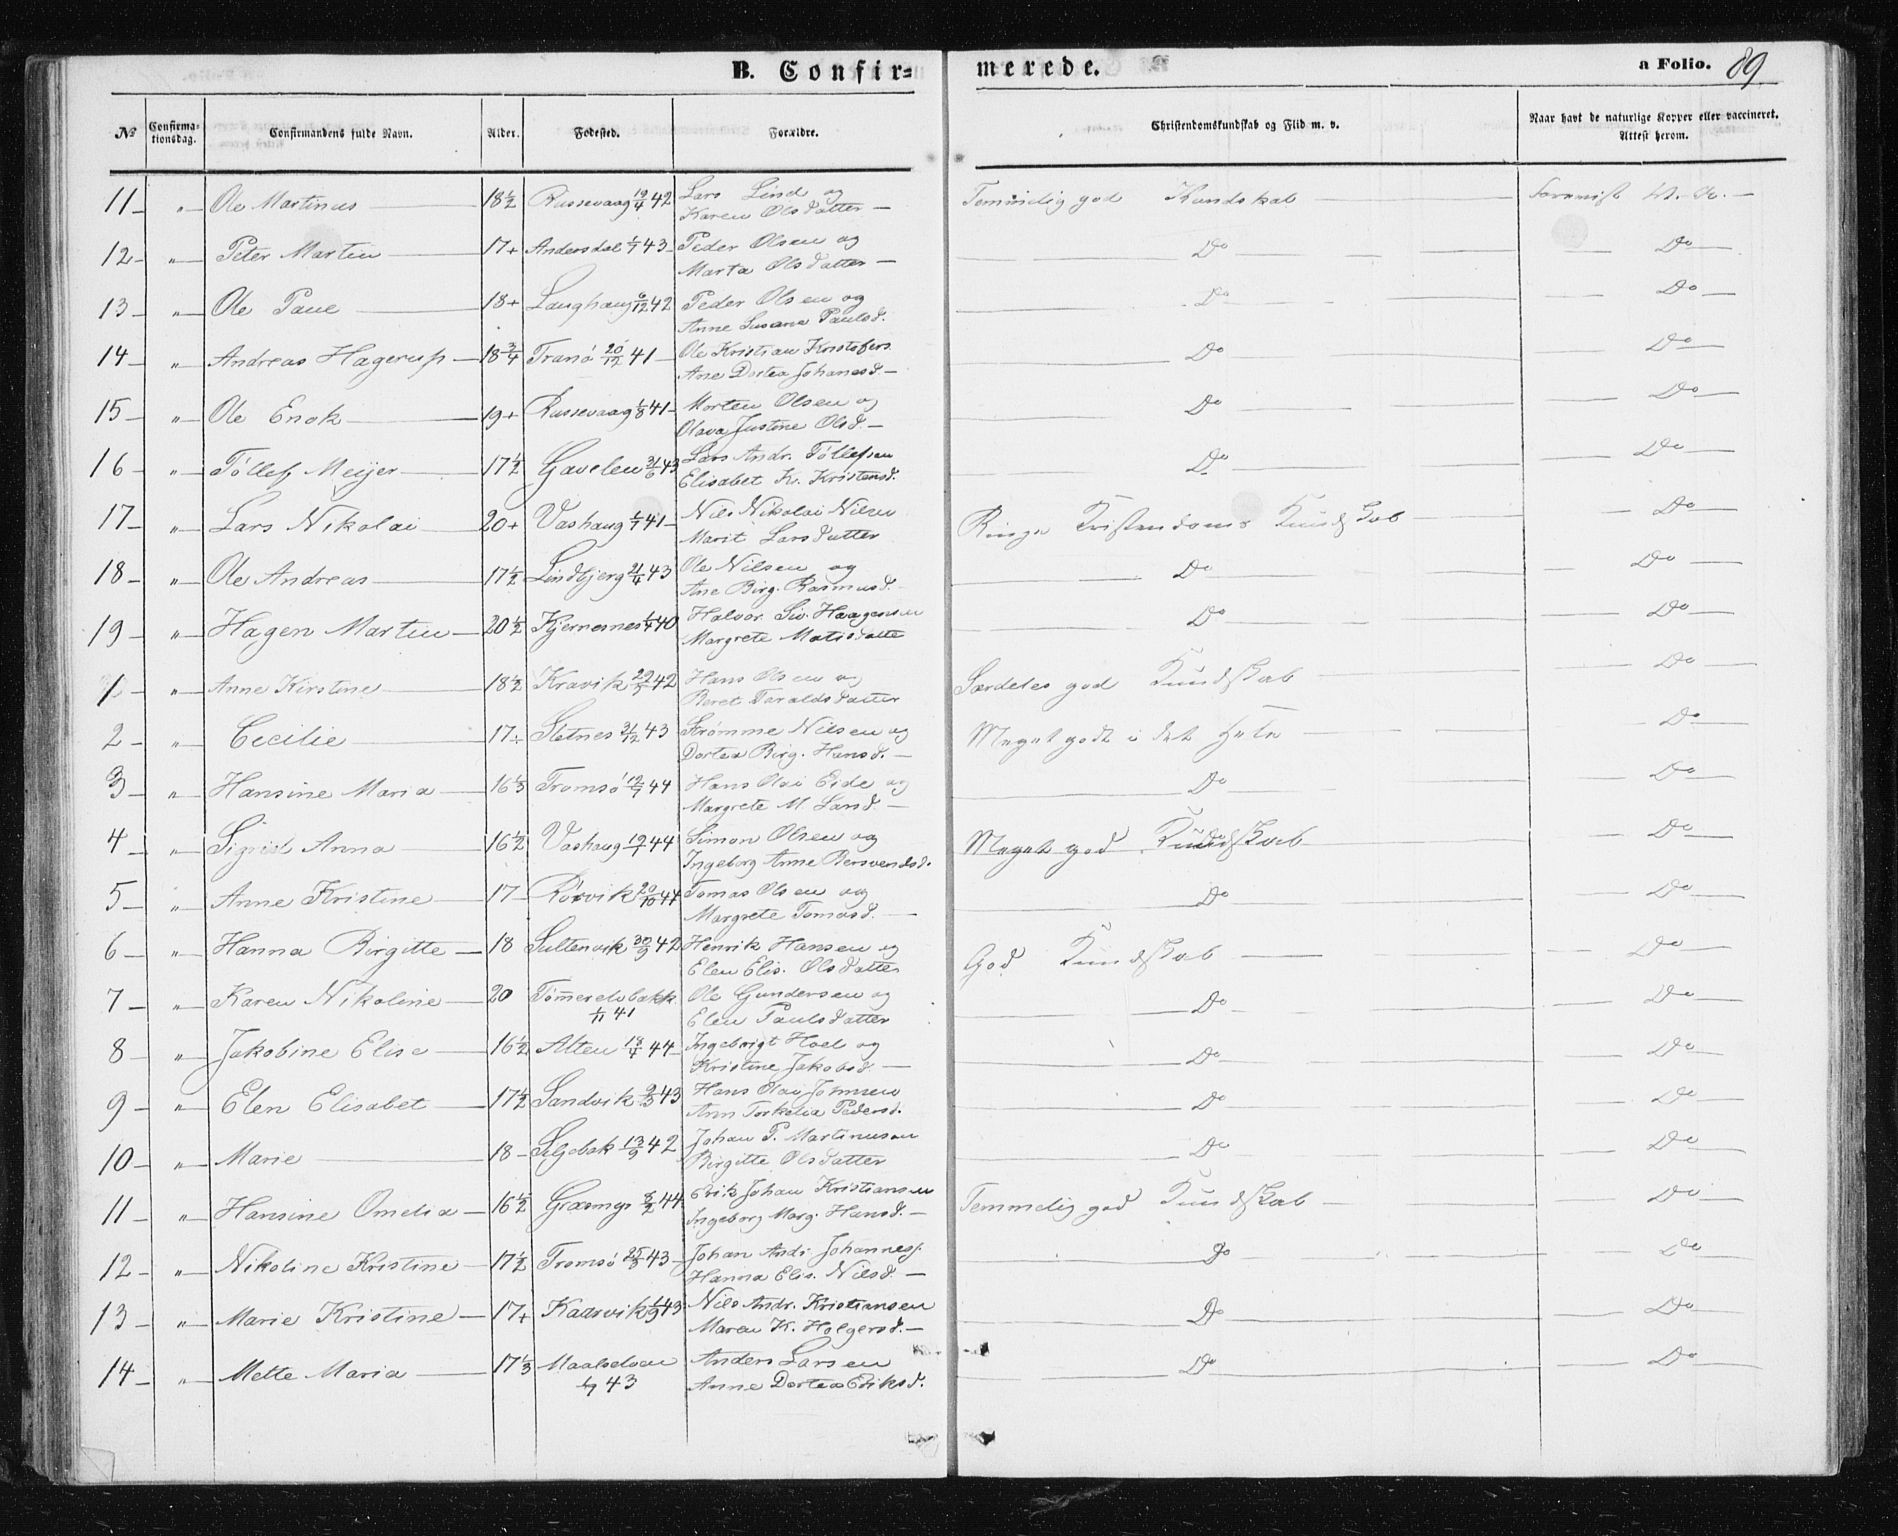 B. Confir= merede. a Folio. 89
No Confirma-tionsdag. Confirmandens fulde Navn. Alder. Fødested. Forældre. Christendomskundskab og Flid m. v. Naar havt de naturlige Kopper eller vaccineret. Attest herom.
11 " Ole Martinus 18 1/2 Russevaag 19/4 42 Lars Lind og
Karen Olsdatter Temmelig god Kundskab
12 " Peter Martin 17+ Andersdal 1/7 43 Peder Olsen og
Marta Olsdatter Do Do
13 " Ole Paue 18+ Laughaug 6/12 42 Peder Olsen og
Anne Susana Paulsd. Do Do
14 " Andreas Hagerup 18 3/4 Tranø 20/12 41 Ole Kristian Kristofers
Ane Dortea Johanesd. Do Do
15 " Ole Enok 19+ Russevaag 1/8 41 Morten Olsen og
Olava Justine Olsd. Do Do
16 " Töllef Meijer 17 1/2 Gavelen 3/6 43 Lars Andr. Töllefsen
Elisabet K. Kristensd. Do Do
17 " Lars Nikolai 20+ Vashaug 1/7 41 Nils Nikolai Nilsen
Marit Larsdatter Ringe Kristendoms Kundskab Do
18 " Ole Andreas 17 1/2 Lindbjerg 21/4 43 Ole Nilsen og
Ane Birg. Rasmusd. Do Do
19 " Hagen Martin 20 1/2 Kjernesnes 1/4 40 Halvor Siv. Haagensen
Margrete Matisdatte Do Do
1 " Anne Kirstine 18 1/2 Kravik 42 Hans Olsen og
Beret Taraldsdatter Særdeles god Kundskab Do
2 " Cecilie 17+ Sletnes 31/12 43 Strømme Nilsen og
Dortea Birg. Hansd. Meget godt i det Hele Do
3 " Hansine Maria 16 1/3 Tromsø 19/7 44 Hans Olai Eide og
Margrete M. Larsd. Do Do
4 " Sigrid Anna 16 1/2 Vashaug 19/7 44 Simon Olsen og
Ingeborg Anne Bersvendsd. Meget god Kundskab Do
5 " Anne Kristine 17 Rörvik 20/10 44 Tomas Olsen og
Margrete Tomasd. Do Do
6 " Hanna Birgitte 18 Sultenvik 30/9 42 Henrik Hansen og
Elen Elis. Olsdatter God Kundskab Do
7 " Karen Nikoline 20 Tömmerelvbakk. Ole Gundersen og
1/11 41 Elen Paulsdatter Do Do
8 " Jakobine Elise 16 1/2 Alten 18/4 44 Ingebrigt Hoel og
Kristine Jakobsd. Do Do
9 " Elen Elisabet 17 1/2 Sandvik 9/3 43 Hans Olai Johnsen
Ann Torkelia Pedersd. Do Do
10 " Marie 18 Seljebak 13/9 42 Johan P. Martinusen
Birgitte Olsdatter Do Do
11 " Hansine Omelia 16 1/2 Græsmyr 8/2 44 Erik Johan Kristiansen
Ingeborg Marg. Hansd. Temmelig god Kundskab Do
12 " Nikoline Kristine 17 1/2 Tromsø 25/8 43 Johan Andr. Johannes.
Hanna Elis. Nilsd. Do Do
13 " Marie Kristine 17+ Kaarvik 1/9 43 Nils Andr. Kristiansen
Maren K. Holgersd. Do Do
14 " Mette Maria 17 1/3 Maalselven Anders Larsen
1/7 43 Anne Dortea Eriksd. Do Do